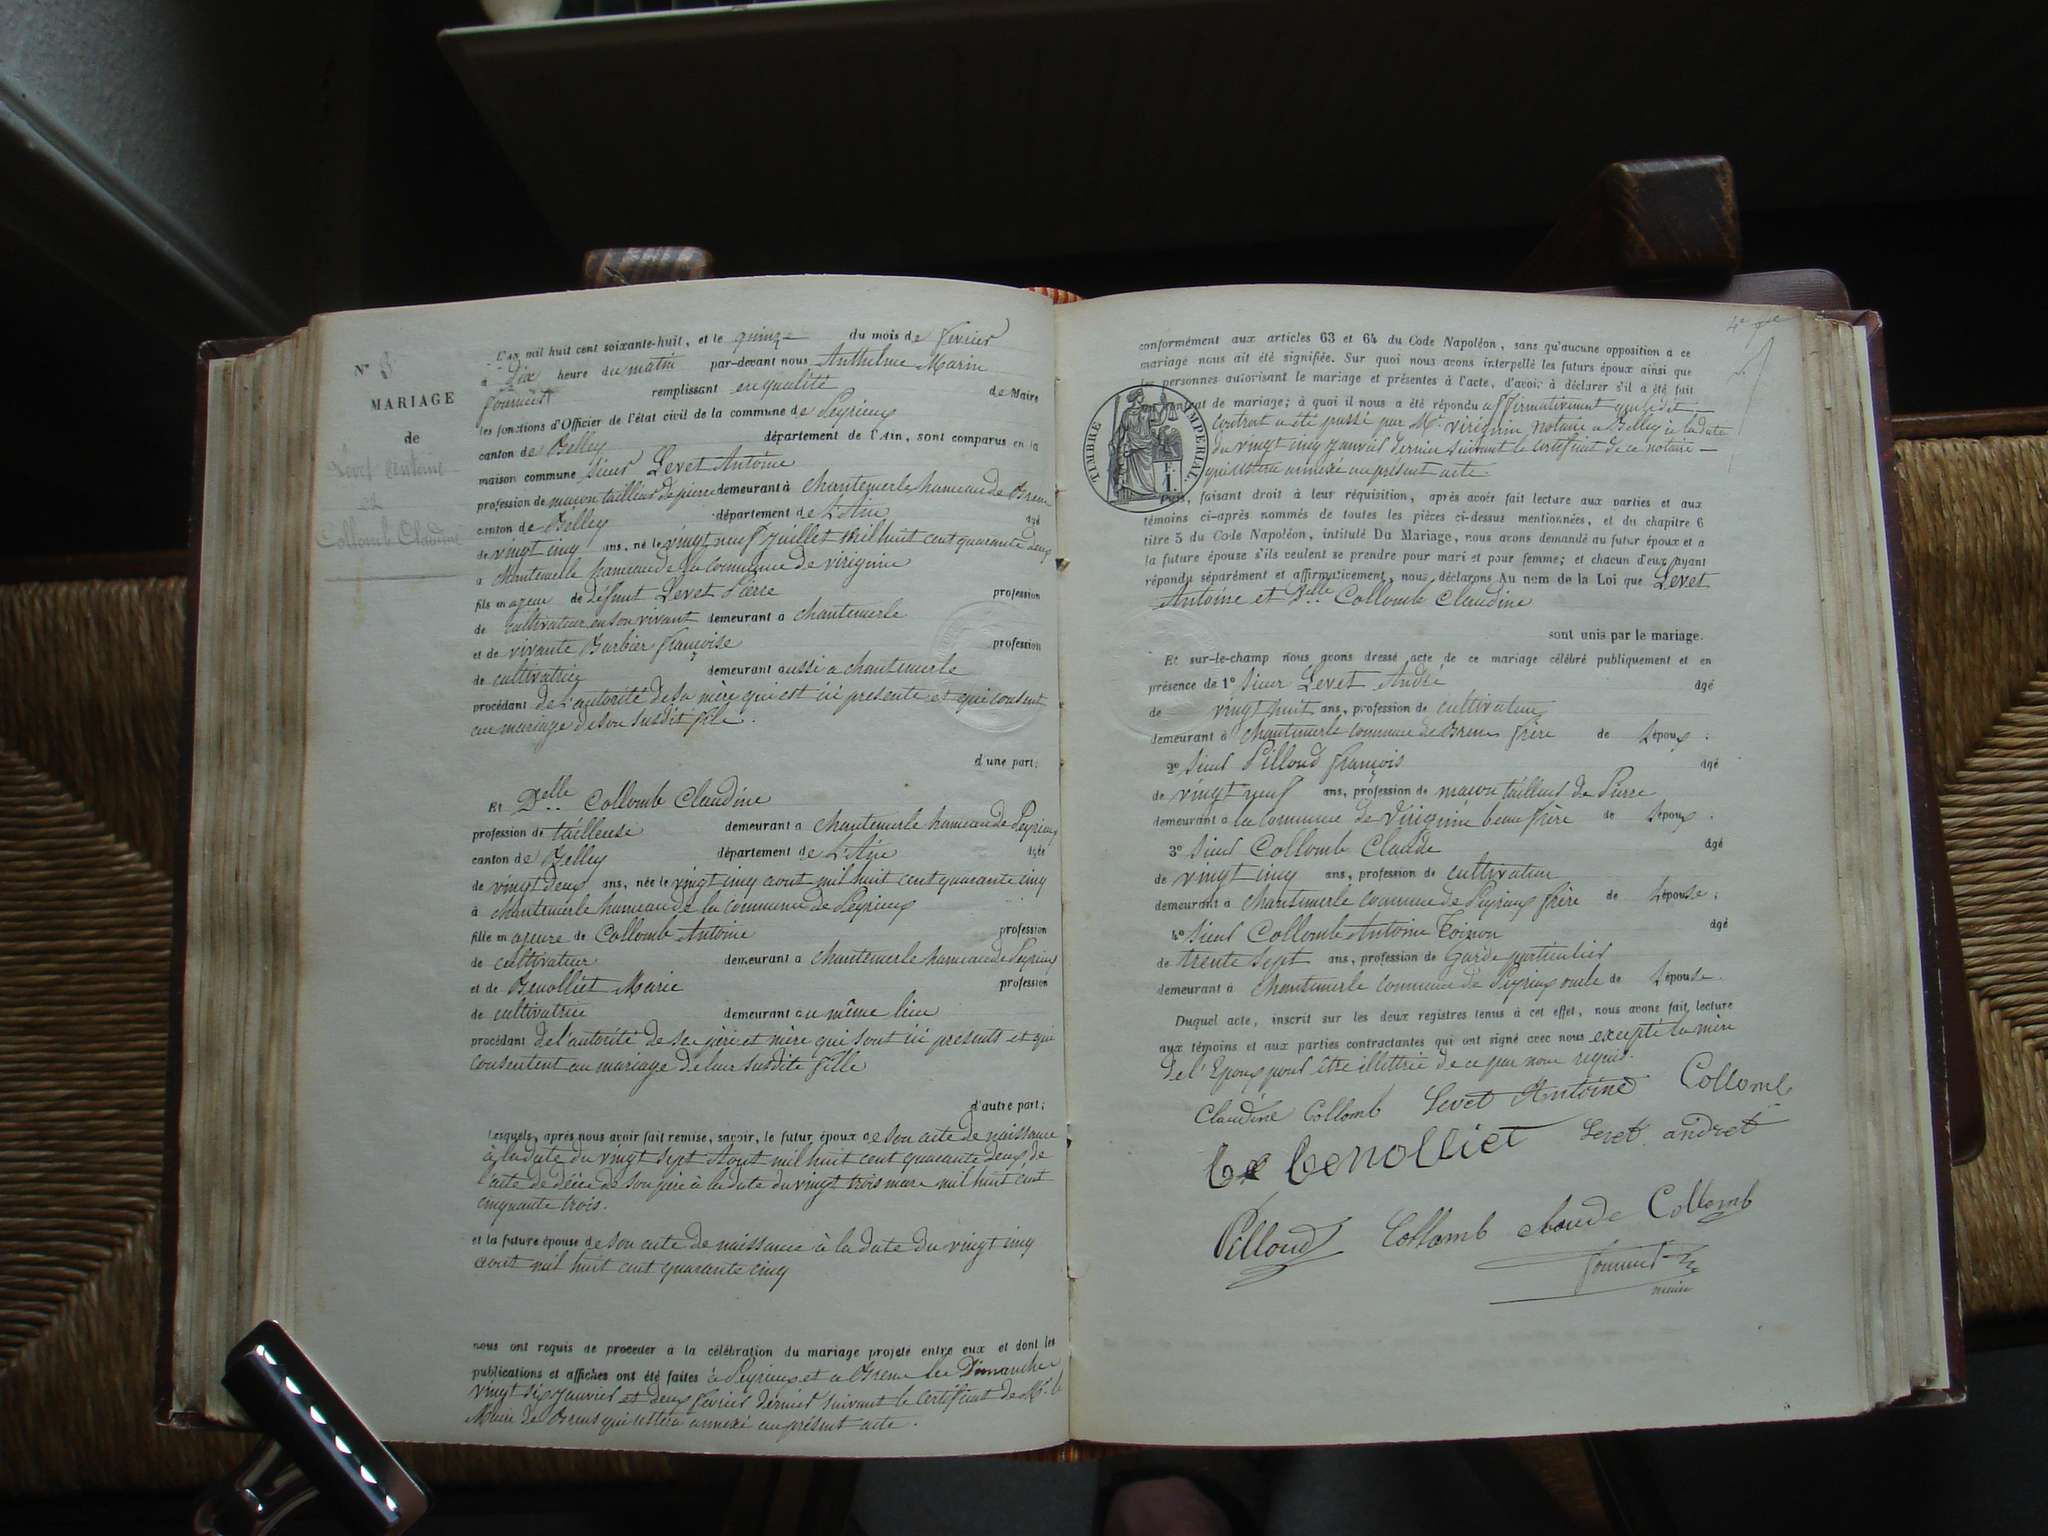 N° 3
MARIAGE
de
Levet Antoine
et
Collomb Claudine
L'an mil huit cent soixante-huit, et le quinze du mois de Février
à dix heure du matin par-devant nous Anthelme Marin
Fournier remplissant en qualité de Maire
les fonctions d'Officier de l'état civil de la commune de Peyrieux
canton de Belley département de l'Ain, sont comparus en la
maison commune sieur Levet Antoine
profession de maçon tailleur de pierre demeurant à Chantemerle hameau de Brens
canton de Belley département de L'Ain âgé
de vingt cinq ans, né le vingt neuf Juillet mil huit cent quarante deux
à Chantemerle hameau de la Commune de Virignin
fils majeur de défunt Levet Pierre profession
de cultivateur en son vivant demeurant à Chantemerle
et de vivante Barbier Françoise profession
de cultivatrice demeurant aussi à chantemerle
procédant de L'autorité de sa mère qui est ici présente et qui consent
au mariage de son susdit fils.
d'une part;
Et Delle Collomb Claudine
profession de tailleuse demeurant à Chantemerle hameau de Peyrieux
canton de Belley département de L'Ain âgée
de vingt deux ans, née le vingt cinq aout mil huit cent quarante cinq
à chantemerle hameau de la commune de Peyrieux
fille majeure de Collomb Antoine profession
de cultivateur demeurant à chantemerle hameau de Peyrieux
et de Benolliet Marie profession
de cultivatrice demeurant au même lieu
procédant de l'autorité de ses père et mère qui sont ici présents et qui
consentent au mariage de leur susdite fille
d'autre part;
Lesquels, après nous avoir fait remise, savoir, le futur époux de son acte de naissance
à la date du vingt sept Aout mil huit cent quarante deux, de
l'acte de décès de son père à la date du vingt trois mars mil huit cent
cinquante trois.
et la future épouse de son acte de naissance à la date du vingt cinq
aout mil huit cent quarante cinq
nous ont requis de procéder à la célébration du mariage projeté entre eux et dont les
publications et affiches ont été faites à Peyrieux et à Brens les Dimanches
vingt six janvier et deux février dernier suivant le certificat de Mr. le
Maire de Brens qui restera annexé au présent acte.
conformément aux articles 63 et 64 du Code Napoléon, sans qu'aucune opposition à ce
mariage nous ait été signifiée. Sur quoi nous avons interpellé les futurs époux ainsi que
les personnes autorisant le mariage et présentes à l'acte, d'avoir à déclarer s'il a été fait
contrat de mariage; à quoi il nous a été répondu affirmativement que ledit
contrat a été passé par Me. Virignin notaire à Belley à la date
du vingt cinq janvier dernier suivant le certificat de ce notaire
qui restera annexé au présent acte
TIMBRE IMPERIAL.
Puis, faisant droit à leur réquisition, après avoir fait lecture aux parties et aux
témoins ci-après nommés de toutes les pièces ci-dessus mentionnées, et du chapitre 6
titre 5 du Code Napoléon, intitulé Du Mariage, nous avons demandé au futur époux et a
la future épouse s'ils veulent se prendre pour mari et pour femme; et chacun d'eux ayant
répondu séparément et affirmativement, nous déclarons Au nom de la Loi que Levet
Antoine et Delle Collomb Claudine
sont unis par le mariage.
Et sur-le-champ nous avons dressé acte de ce mariage célébré publiquement et en
présence de 1° sieur Levet André âgé
de vingt huit ans, profession de cultivateur
demeurant à chantemerle commune de Brens frère de L'époux;
2° sieur Pilloud François âgé
de vingt neuf ans, profession de maçon tailleur de Pierre
demeurant à la commune de Virignin beau frère de L'époux.
3° sieur Collomb Claude âgé
de vingt cinq ans, profession de cultivateur
demeurant à chantemerle commune de Peyrieux frère de L'épouse;
4° sieur Collomb Antoine Toinon âgé
de trente sept ans, profession de Garde particulier
demeurant à Chantemerle commune de Peyrieux oncle de L'épouse
Duquel acte, inscrit sur les deux registres tenus à cet effet, nous avons fait lecture
aux témoins et aux parties contractantes qui ont signé avec nous excepté la mère
de l'Epoux pour être illettrée de ce par nous requis.
Claudine Collomb Levet Antoine Collomb
Benolliet Levet andret
Pilloud Collomb claude Collomb
Fournier
maire